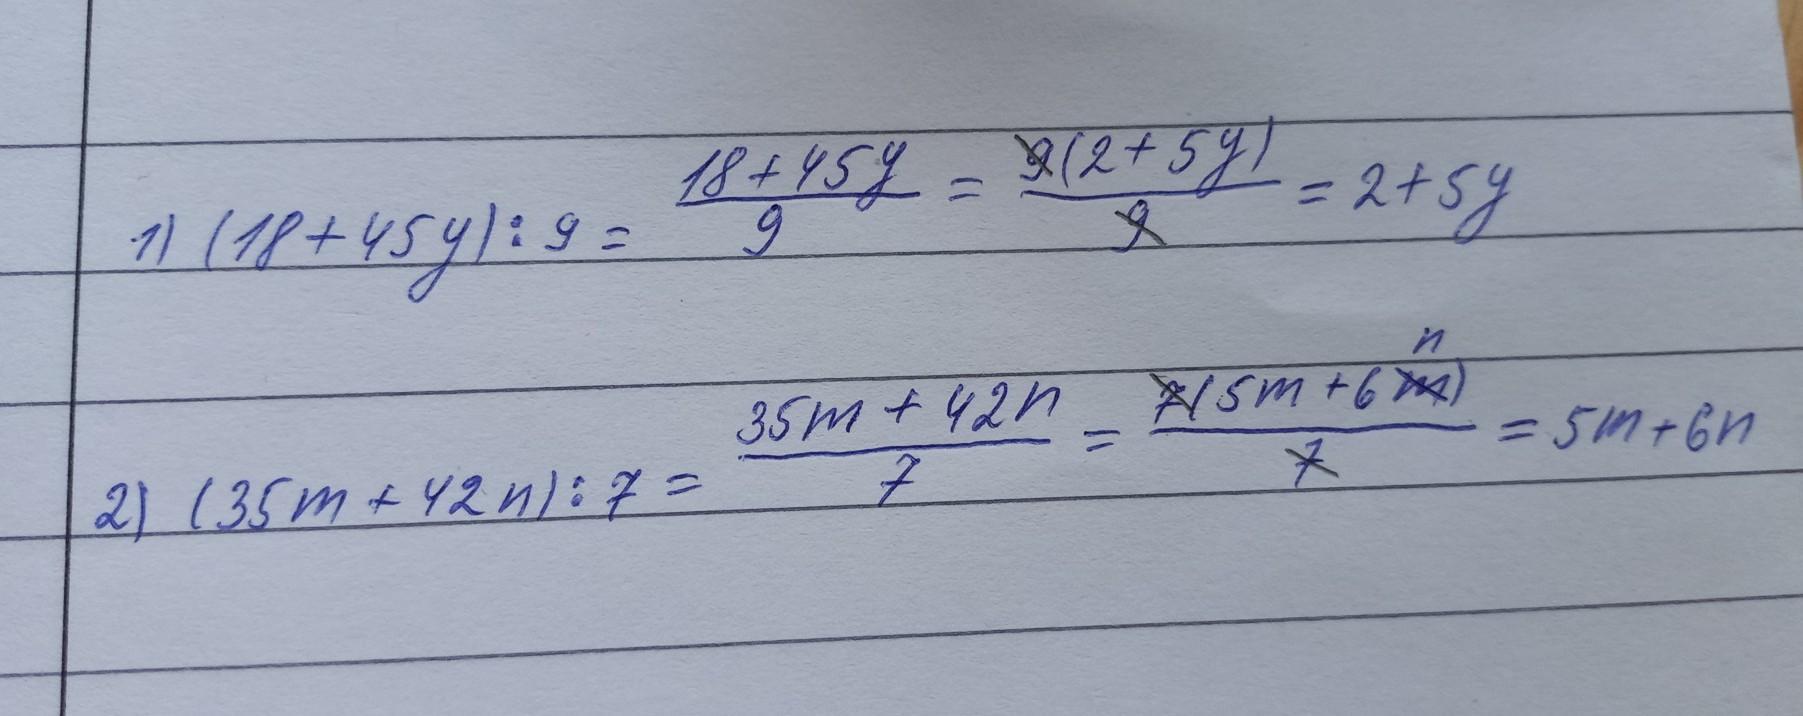 1) (18+45y):9 = \frac{18+45y}{9} = \frac{9(2+5y)}{9} = 2+5y
2) (35m+42n):7 = \frac{35m+42n}{7} = \frac{7(5m+6n)}{7} = 5m+6n